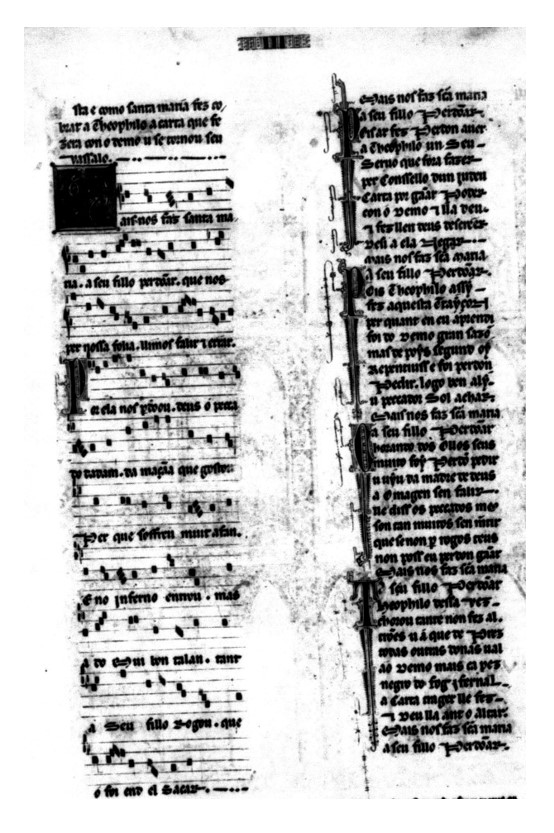 sta e como santa maria fez co
brar a Theophilo a carta que fe
zera con o demo u se tornou seu
vassalo.
ais nos faz santa ma
ria. a seu fillo perdõar. que nos
per nossa folia. llimos falir e errar.
P er ela nos pdõou. deus o pecca
do dadam. da maçãa que gostou
Per que soffreu muit afan.
E no inferno entrou. mas
a do mui bon talan. tant
a Seu fillo Rogou. que
o foi end el Sacar.
Mais nos faz sca maria
a seu fillo Perdõar.
Pois ar fez Perdon auer
a Theophilo un Seu
Seruo que fora fazer
per Conssello dun judeu
Carta por gãar Poder
con o Demo e lla deu.
e fez lleu deus descrer
Des i a ela Negar
Mais nos faz sca maria
a seu fillo Perdõar.
Pois Theophilo assy
fez aquesta Trayçon
per quant en eu aprendi
foi do Demo gran sazõ
mas de poys segund oý
Repentiuss e foi perdon
Pedir. logo ben aly.
u peccador Sol achar.
Mais nos faz sca maria
a seu fillo Perdõar
Chorando dos Ollos seus
muito foy Perdõ pedir
u uyu da madre de deus
a Omagen sen falir
lle diss os peccados me
son tan muitos sen mtir
que se non p rogos teus
non poss eu perdon gãar
Mais nos faz sca maria
a seu fillo Perdõar
Theophilo dessa uez
chorou tant e non fez al.
trões u a que de Prez
todas outras donas ual
ao Demo mais ca pez
negro do fog infernal
a Carta trager lle fez
e Deu lla ant o altar.
Mais nos faz sca maria
a seu fillo Perdõar.